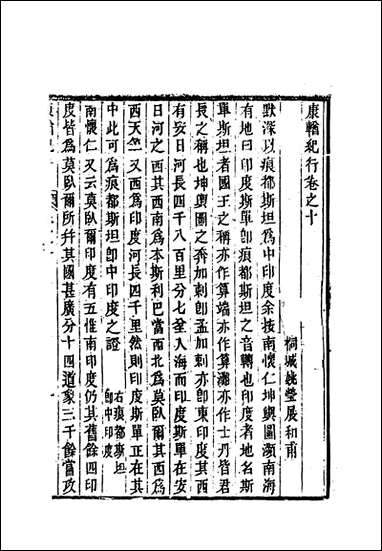 康輶紀行卷之十
桐城姚瑩展和甫
默深以痕都斯坦為中印度余按南懷仁坤輿圖瀕南海
有地曰印度斯單即痕都斯坦之音轉也印度者地名斯
單斯坦者國王之稱亦作算端亦作算灘亦作士丹皆君
長之稱也坤輿圖之莽加剌即孟加剌亦即東印度其西
有安日河長四千八百里分七歧入海而印度斯單在安
日河之西其西南為本斯利巴當西北為莫臥爾其西為
西天竺又西為印度河長四千里然則印度斯單正在其
中此可為痕都斯坦即中印度之證
右痕都斯坦
即中印度
南懷仁又云莫臥爾印度有五惟南印度仍其舊餘四印
度皆為莫臥爾所并其國甚廣分十四道象三千餘嘗攻